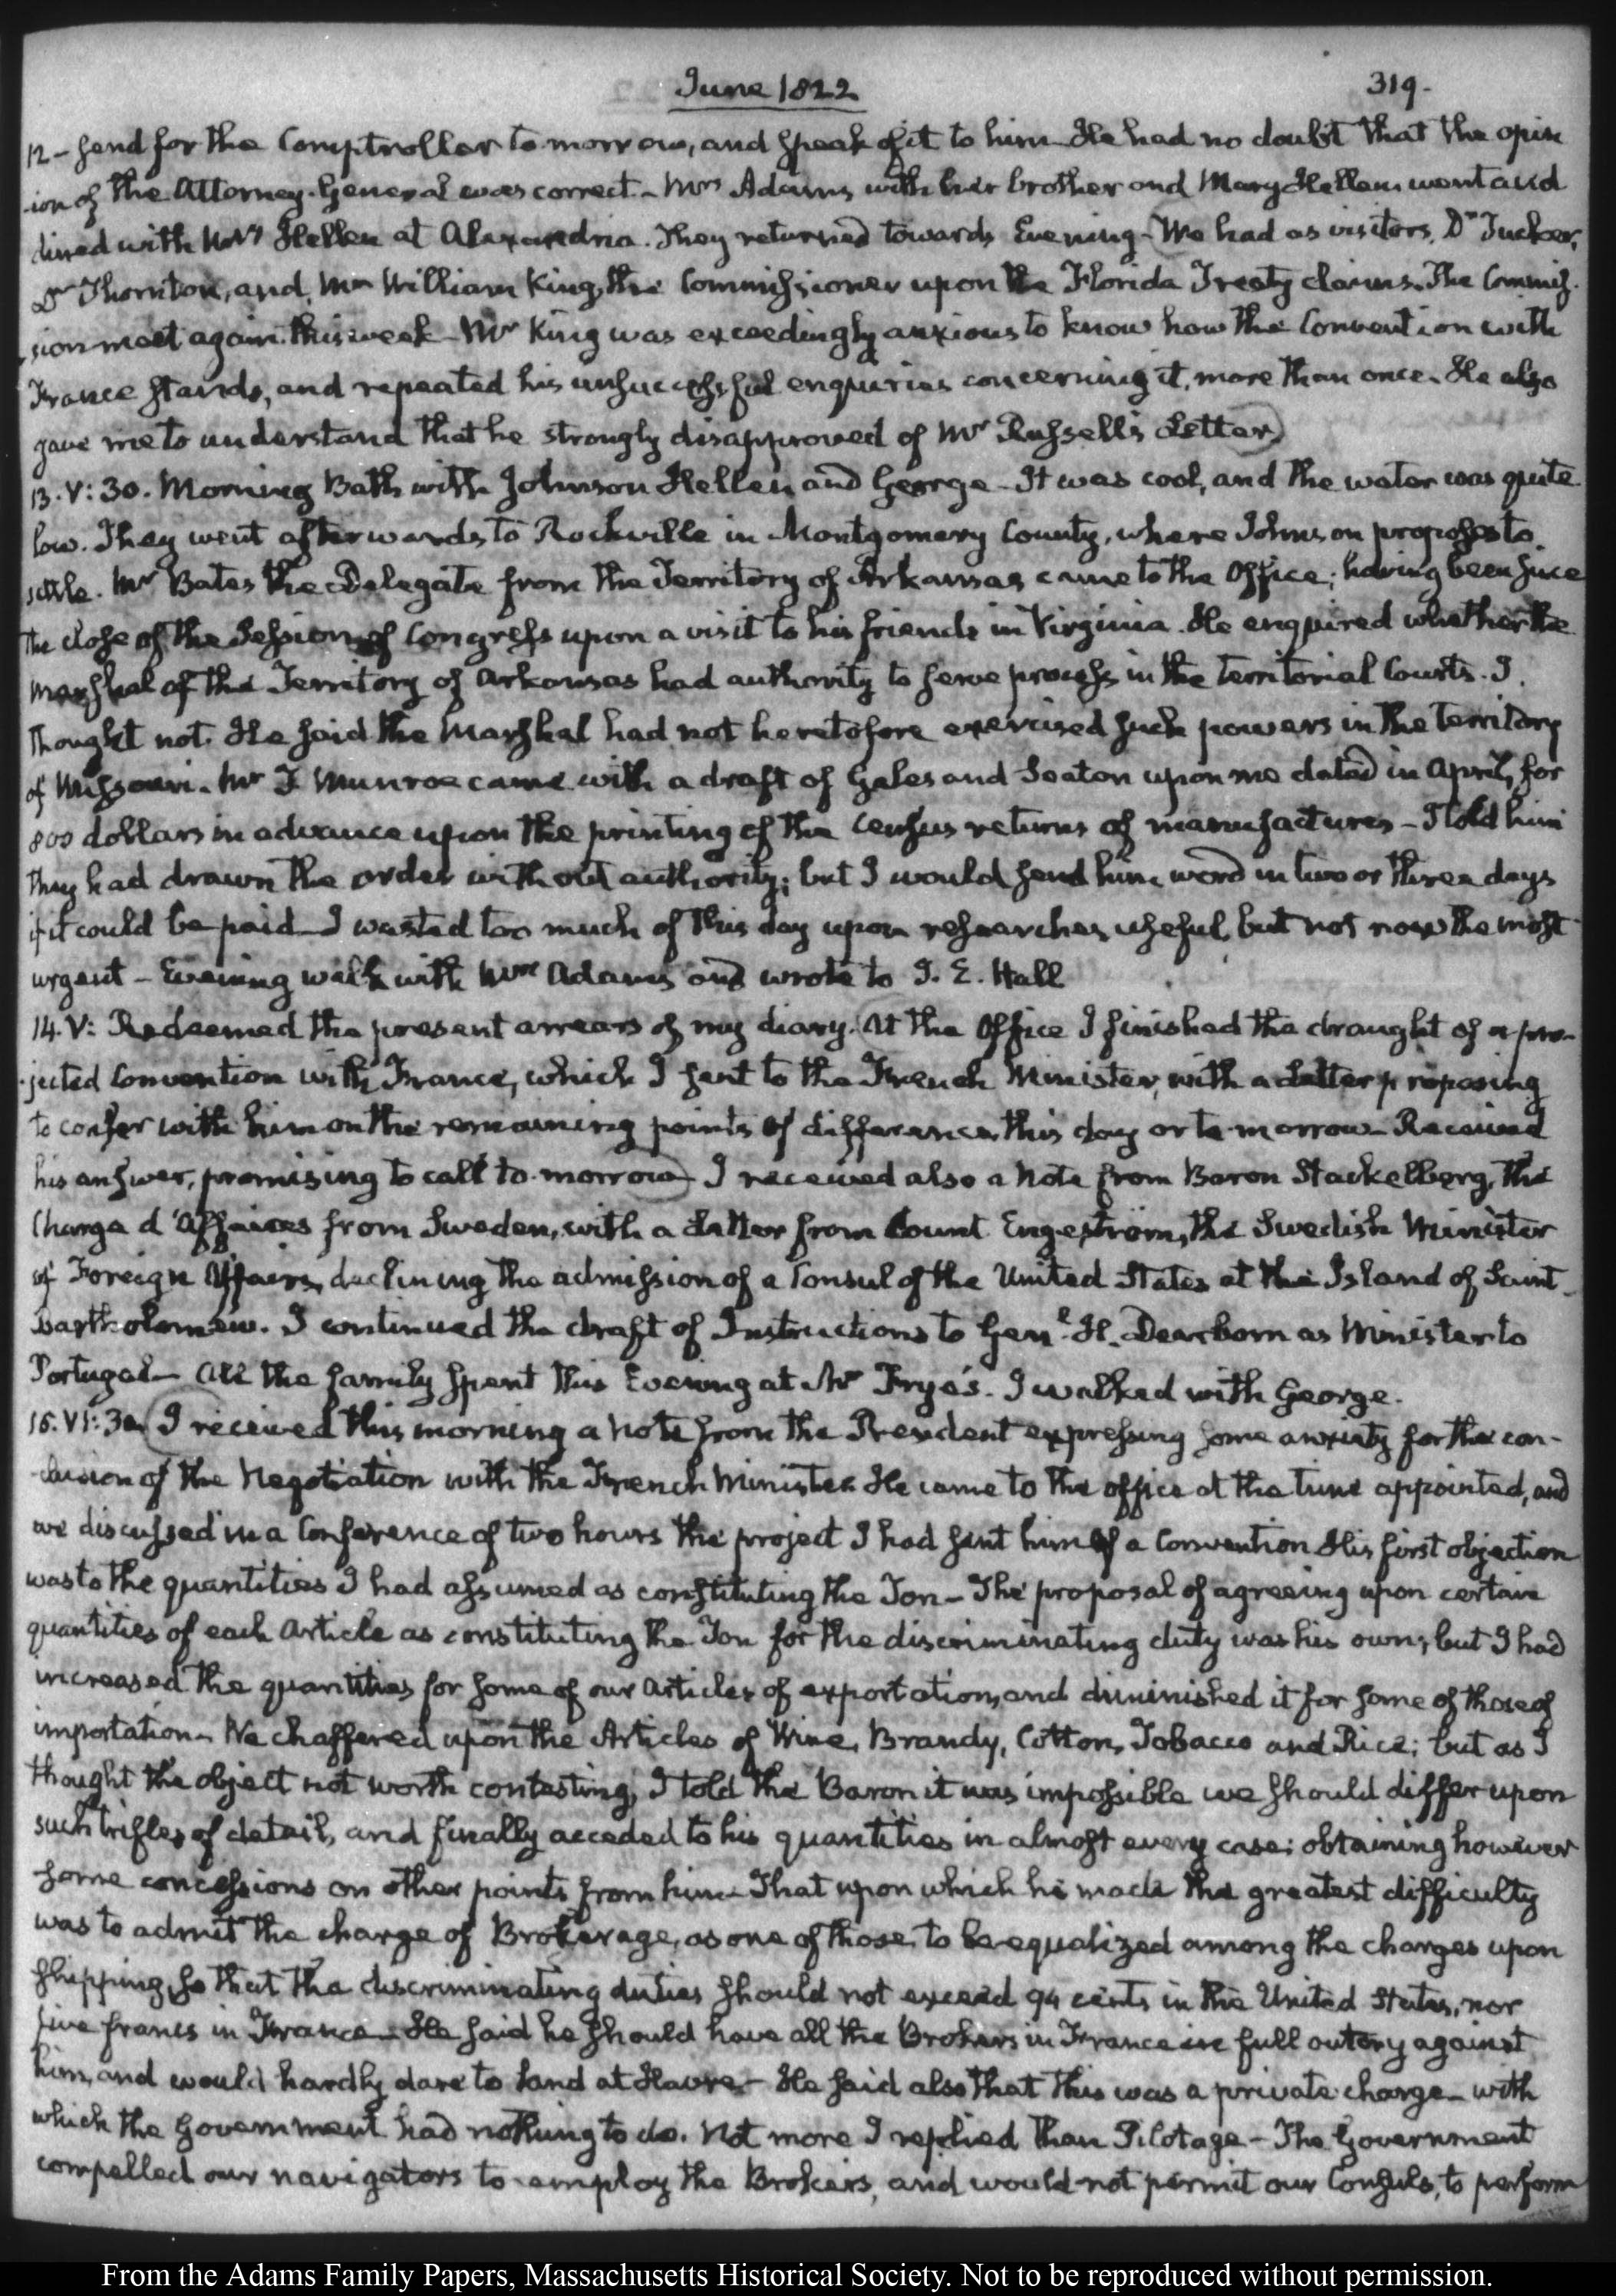 June 1822
319.
12 - send for the Comptroller to morrow, and speak of it to him - He had no doubt that the opin
-ion of the Attorney-General was correct - Mrs Adams, with her brother and Mary Hellen went and
dined with Mrs Hellen at Alexandria. They returned towards Evening - We had as visitors, Dr Tucker,
Dr Thornton, and Mr William King, the Commissioner upon the Florida Treaty claims. The Commis-
sion meet again this week - Mr King was exceedingly anxious to know how the Convention with
France stands, and repeated his unsuccessful enquiries concerning it, more than once. He also
gave me to understand that he strongly disapproved of Mr Russell's Letter)
13. V: 30. Morning Bath with Johnson Hellen and George - It was cool, and the water was quite
low. They went afterwards to Rockville in Montgomery County, where Johnson proposes to
settle. Mr Bates the Delegate from the Territory of Arkansas came to the Office; having been since
the close of the Session of Congress upon a visit to his friends in Virginia. He enquired whether the
Marshal of the Territory of Arkansas had authority to serve process in the territorial Courts. I
thought not. He said the Marshal had not heretofore exercised such powers in the Territory
of Missouri. Mr T Munroe came with a draft of Gales and Seaton upon me dated in April, for
800 dollars in advance upon the printing of the Census returns of manufactures - I told him
they had drawn the order without authority; but I would send him word in two or three days
if it could be paid - I wasted too much of this day upon researches, useful, but not now the most
urgent - Evening walk with Mrs Adams and wrote to J. E. Hall
14. V: Redeemed the present arrears of my diary. (At the Office I finished the draught of a pro-
-jected Convention with France, which I sent to the French Minister, with a Letter proposing
to confer with him on the remaining points of difference, this day or to-morrow - Received
his answer, promising to call to-morrow) I received also a Note from Baron Stackelberg, the
Chargé d'Affaires from Sweden, with a Letter from Count Engeström, the Swedish Minister
of Foreign Affairs, declining the admission of a Consul of the United States at the Island of Saint
Bartholomew. I continued the draft of Instructions to Genl. H. Dearborn as Minister to
Portugal - All the family spent this Evening at Mr Frye's. I walked with George.
15. VI: 30. (I received this morning a Note from the President expressing some anxiety for the con-
-clusion of the Negotiation with the French Minister. He came to the office at the time appointed, and
we discussed in a Conference of two hours the project I had sent him of a Convention. His first objection
was to the quantities I had assumed as constituting the Ton - The proposal of agreeing upon certain
quantities of each Article as constituting the Ton for the discriminating duty was his own; but I had
increased the quantities for some of our Articles of exportation, and diminished it for some of those of
importation. We chaffered upon the Articles of Wine, Brandy, Cotton, Tobacco and Rice; but as I
thought the object not worth contesting, I told the Baron it was impossible we should differ upon
such trifles of detail, and finally acceded to his quantities in almost every case; obtaining however
some concessions on other points from him. That upon which he made the greatest difficulty
was to admit the charge of Brokerage, as one of those to be equalized among the charges upon
shipping, so that the discriminating duties should not exceed 94 cents in the United States, nor
five francs in France. He said he should have all the Brokers in France in full outcry against
him, and would hardly dare to land at Havre. - He said also that this was a private charge - with
which the Government had nothing to do. Not more I replied than Pilotage - The Government
compelled our navigators to employ the Brokers, and would not permit our Consuls, to perform
From the Adams Family Papers, Massachusetts Historical Society. Not to be reproduced without permission.